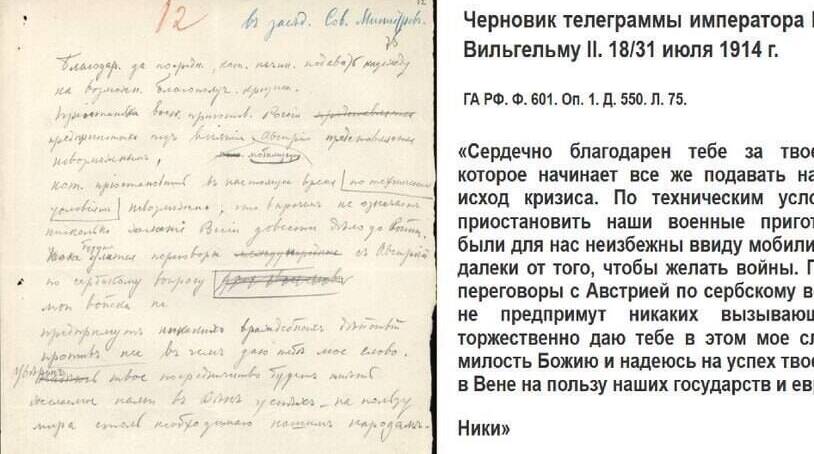 12
12 в засѣд. Сов. Министровъ.
Благодар. за посредн., кот. начин. подавать надежду
на возможн. благополуч. кризиса.
Приостановка воен. приготов.
невозможнымъ,
мобилиз
кот. приостановить въ настоящее время по техническим
условіямъ невозможно, что впрочем не означает
довести дѣло до войны.
Пока будутъ длится переговоры съ Австріей
по сербскому вопросу
мои войска не
предпримутъ никакихъ враждебныхъ дѣйствій
въ чемъ даю тебѣ мое слово.
твое посредничество будетъ имѣть
желаемое нами въ Вѣнѣ успѣхъ на пользу
мира столь необходимаго нашимъ народамъ.
Черновик телеграммы императора
Вильгельму II. 18/31 июля 1914 г.
ГА РФ. Ф. 601. Оп. 1. Д. 550. Л. 75.
«Сердечно благодарен тебе за твое
которое начинает все же подавать на
исход кризиса. По техническим усло
приостановить наши военные пригот
были для нас неизбежны ввиду мобили
далеки от того, чтобы желать войны. П
переговоры с Австрией по сербскому в
не предпримут никаких вызывающ
торжественно даю тебе в этом мое сл
милость Божию и надеюсь на успех твое
в Вене на пользу наших государств и ев
Ники»